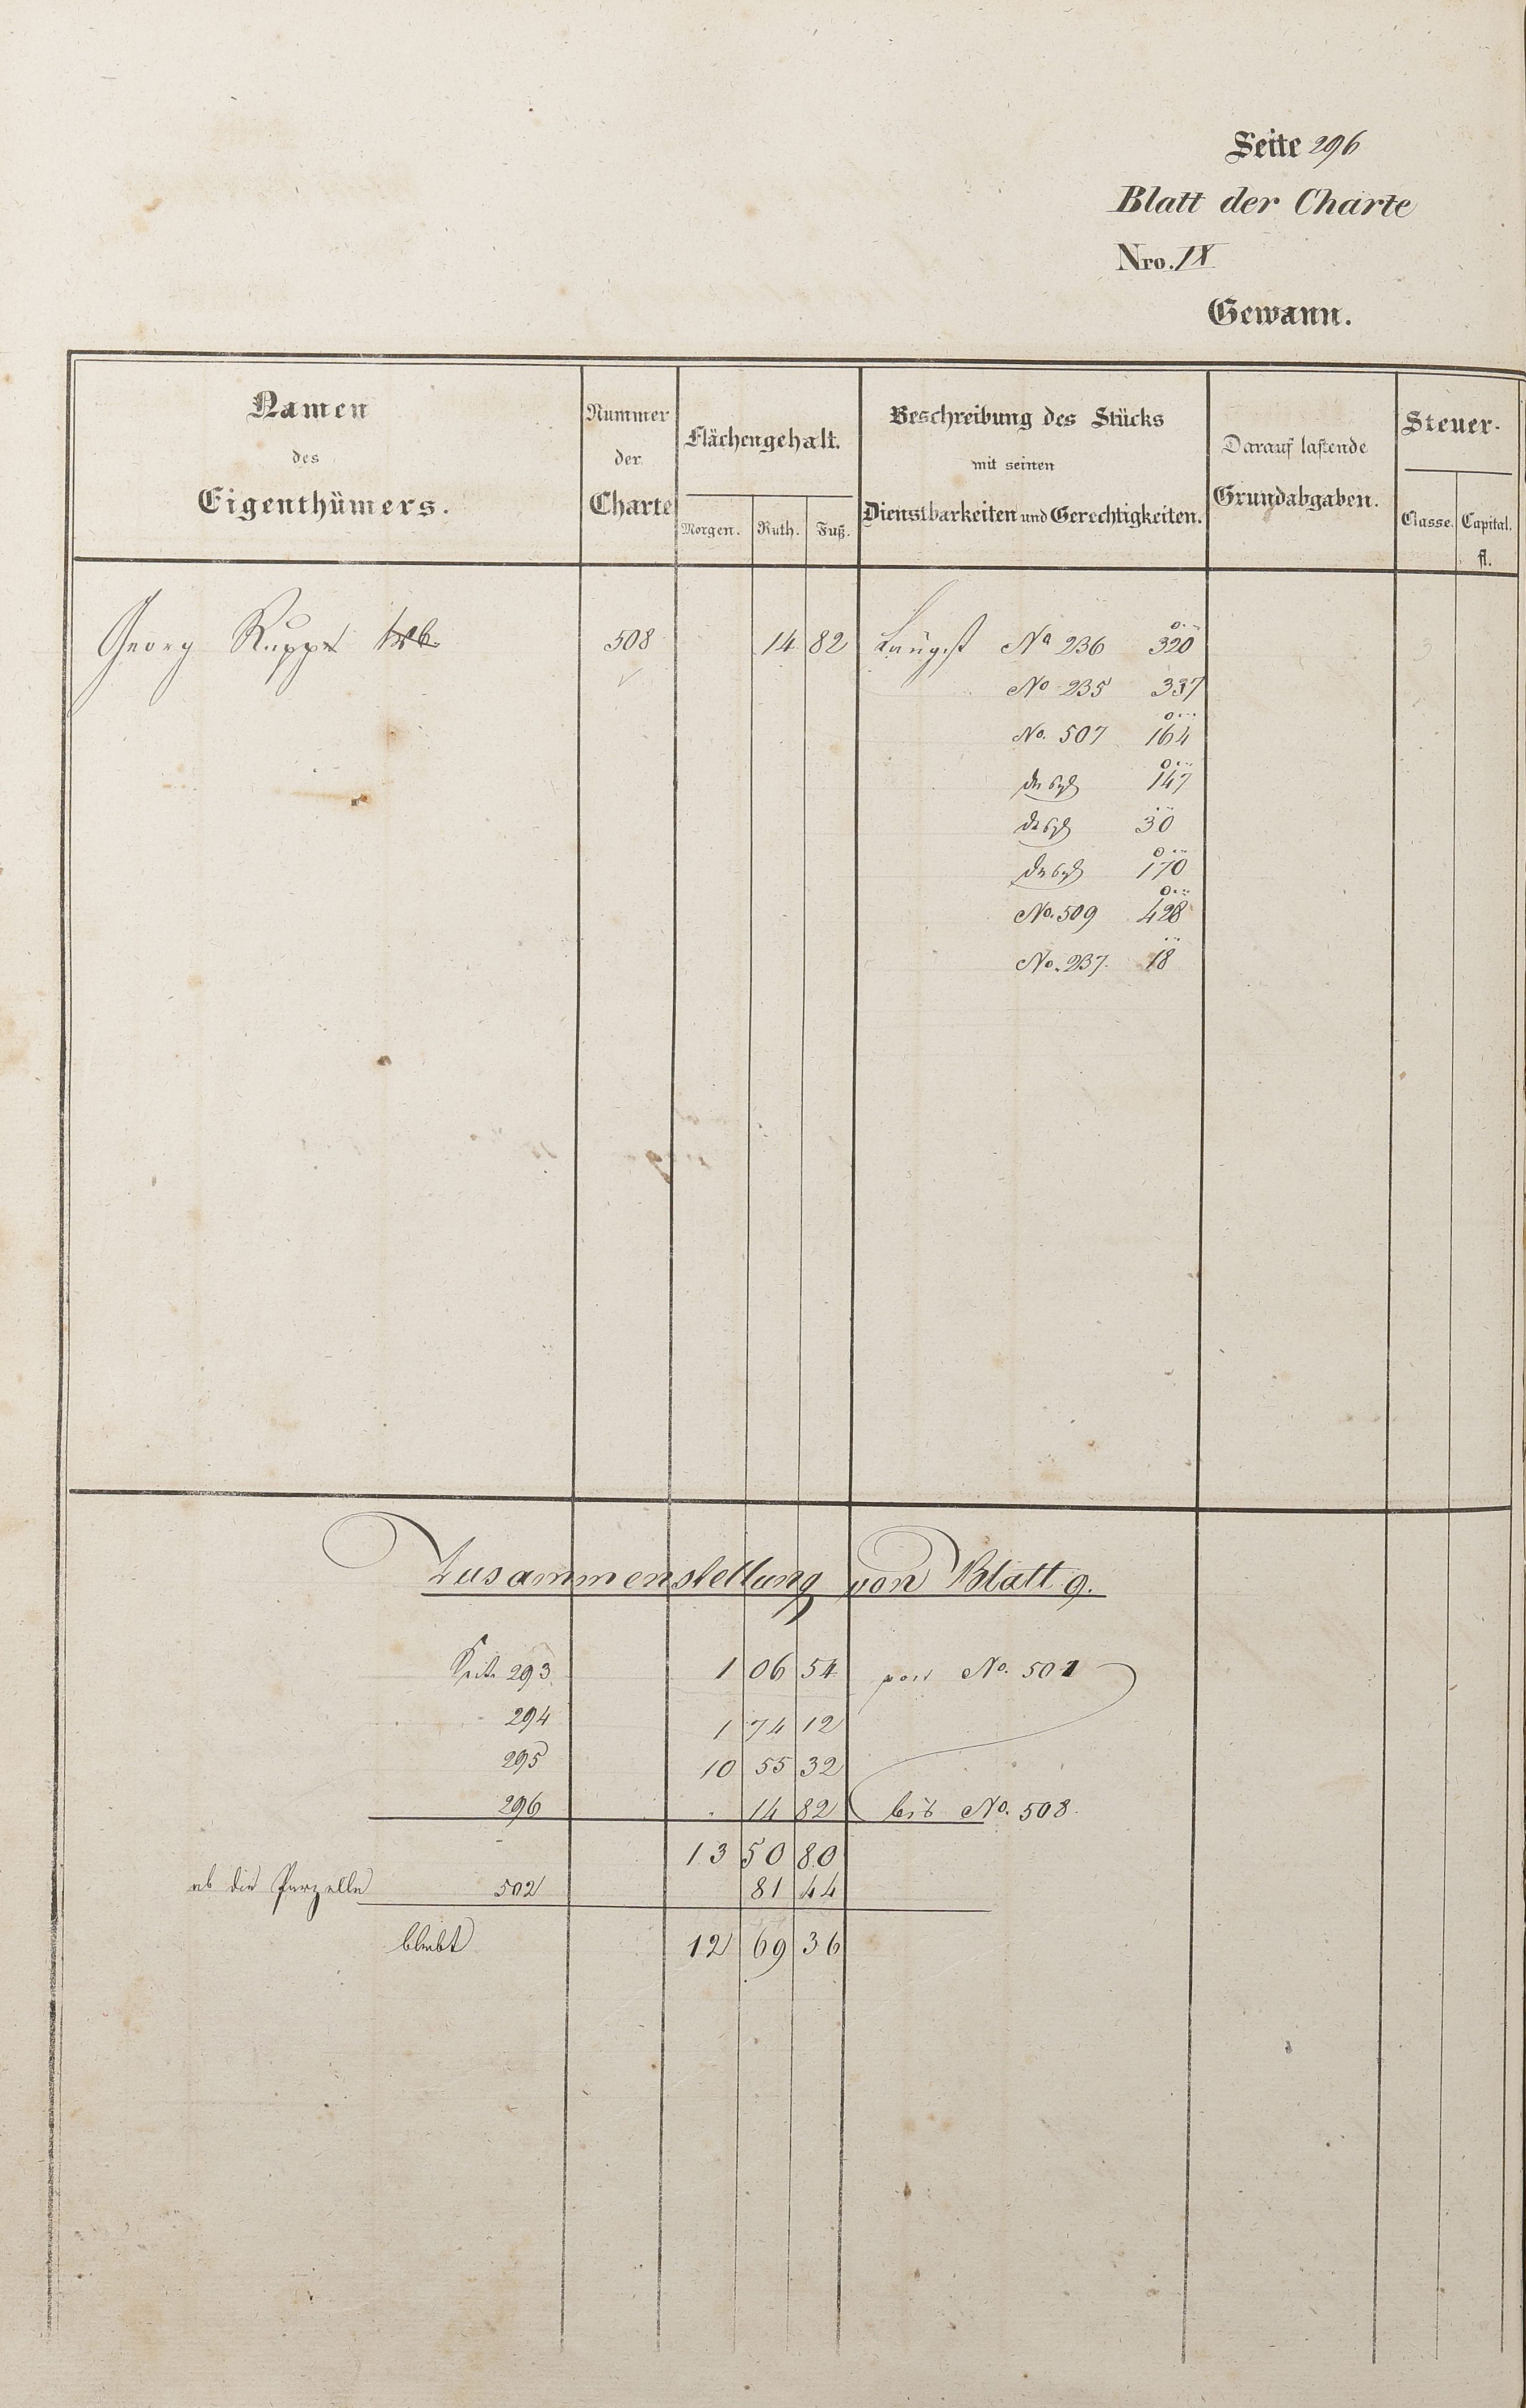 Seite 296
Blatt der Charte
Nro. IX
Gewann.
Namen des Eigenthümers.
Nummer der Charte
Flächengehalt.
Morgen. Ruth. Fuß.
Beschreibung des Stücks
mit seinen
Dienstbarkeiten und Gerechtigkeiten.
Darauf lastende
Grundabgaben.
Steuer-
Classe. Capital.
fl.
Georg Rupp 508 14 82 Längst No 236 320
No 235 337
No. 507 164
desgl 147
desgl 30
desgl 170
No. 509 428
No. 237. 18
Zusammenstellung von Blatt 9.
Seite 293 1 06 54 von No. 501
294 1 74 12
295 10 55 32
296 . 14 82 bis No. 508.
13 50 80
ab die Parzelle 502 81 44
bleibt 12 69 36